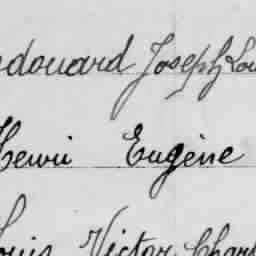 edouard Joseph Lou
Henri Eugène
Louis Victor Charl